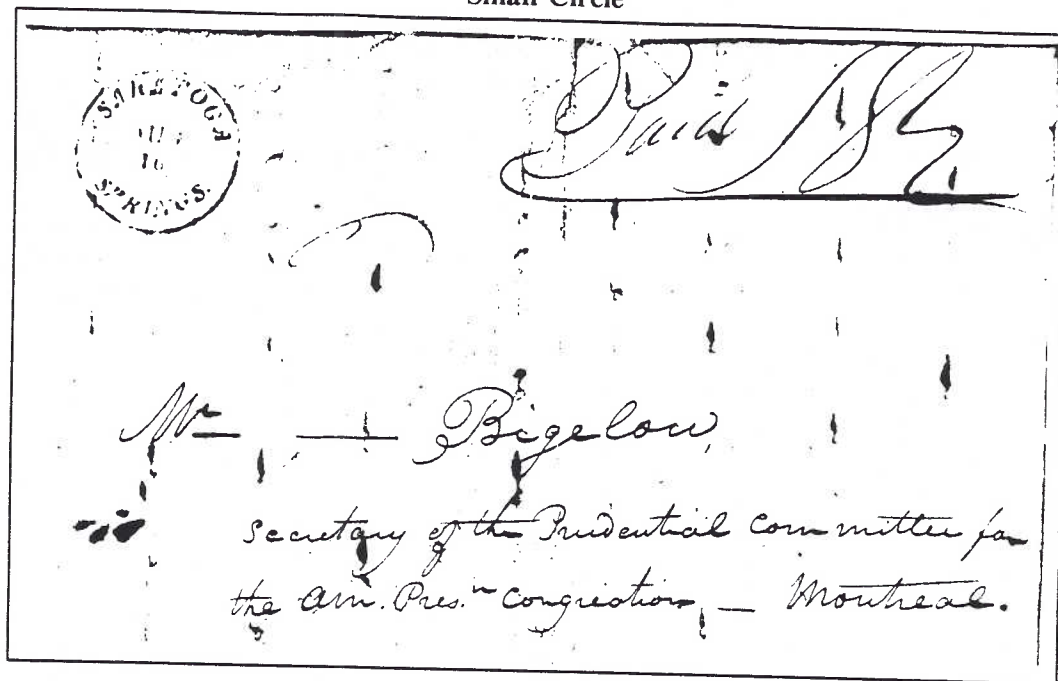 Small Circle
SARATOGA
16
SPRINGS.
Paid
Mr — Bigelow,
Secretary of the Prudential Committee for
the Am. Pres.n Congreation, — Montreal.